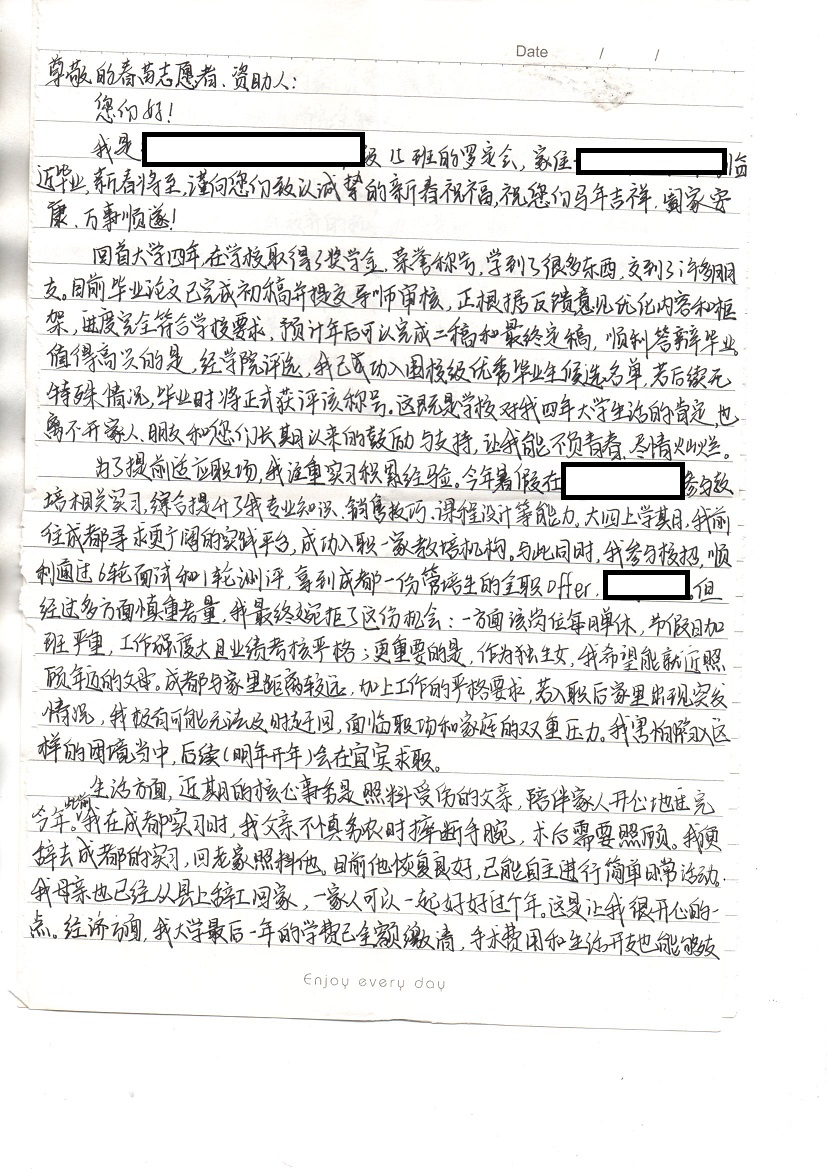 Date / /
尊敬的春苗志愿者、资助人：
您们好！
我是 级15班的罗定会，家住 临
近毕业，新春将至，谨向您们致以诚挚的新春祝福，祝您们马年吉祥、阖家安
康、万事顺遂！
回首大学四年，在学校取得了奖学金、荣誉称号，学到了很多东西，交到了许多朋
友。目前毕业论文已完成初稿并提交导师审核，正根据反馈意见优化内容和框
架，进度完全符合学校要求，预计年后可以完成二稿和最终定稿，顺利答辩毕业。
值得高兴的是，经学院评选，我已成功入围校级优秀毕业生候选名单，若后续无
特殊情况，毕业时将正式获评该称号。这既是学校对我四年大学生活的肯定，也
离不开家人、朋友和您们长期以来的鼓励与支持，让我能不负青春、尽情灿烂。
为了提前适应职场，我注重实习积累经验。今年暑假在 参与教
培相关实习，综合提升了我专业知识、销售技巧、课程设计等能力。大四上学期，我前
往成都寻求更广阔的实践平台，成功入职一家教培机构。与此同时，我参与校招，顺
利通过6轮面试和1轮测评，拿到成都一份管培生的全职offer， 但
经过多方面慎重考量，我最终婉拒了这份机会：一方面该岗位每月单休，节假日加
班严重，工作强度大且业绩考核严格；更重要的是，作为独生女，我希望能就近照
顾年迈的父母。成都与家里距离较远，加上工作的严格要求，若入职后家里出现突发
情况，我极有可能无法及时赶回，面临职场和家庭的双重压力。我害怕陷入这
样的困境当中，后续（明年开年）会在宜宾求职。
生活方面，近期的核心事务是照料受伤的父亲，陪伴家人开心地过完
今年。此前我在成都实习时，我父亲不慎务农时摔断手腕，术后需要照顾。我便
辞去成都的实习，回老家照料他。目前他恢复良好，已能自主进行简单日常活动。
我母亲也已经从县上辞工回家，一家人可以一起好好过个年。这是让我很开心的一
点。经济方面，我大学最后一年的学费已全额缴清，手术费用和生活开支也能够支
Enjoy every day